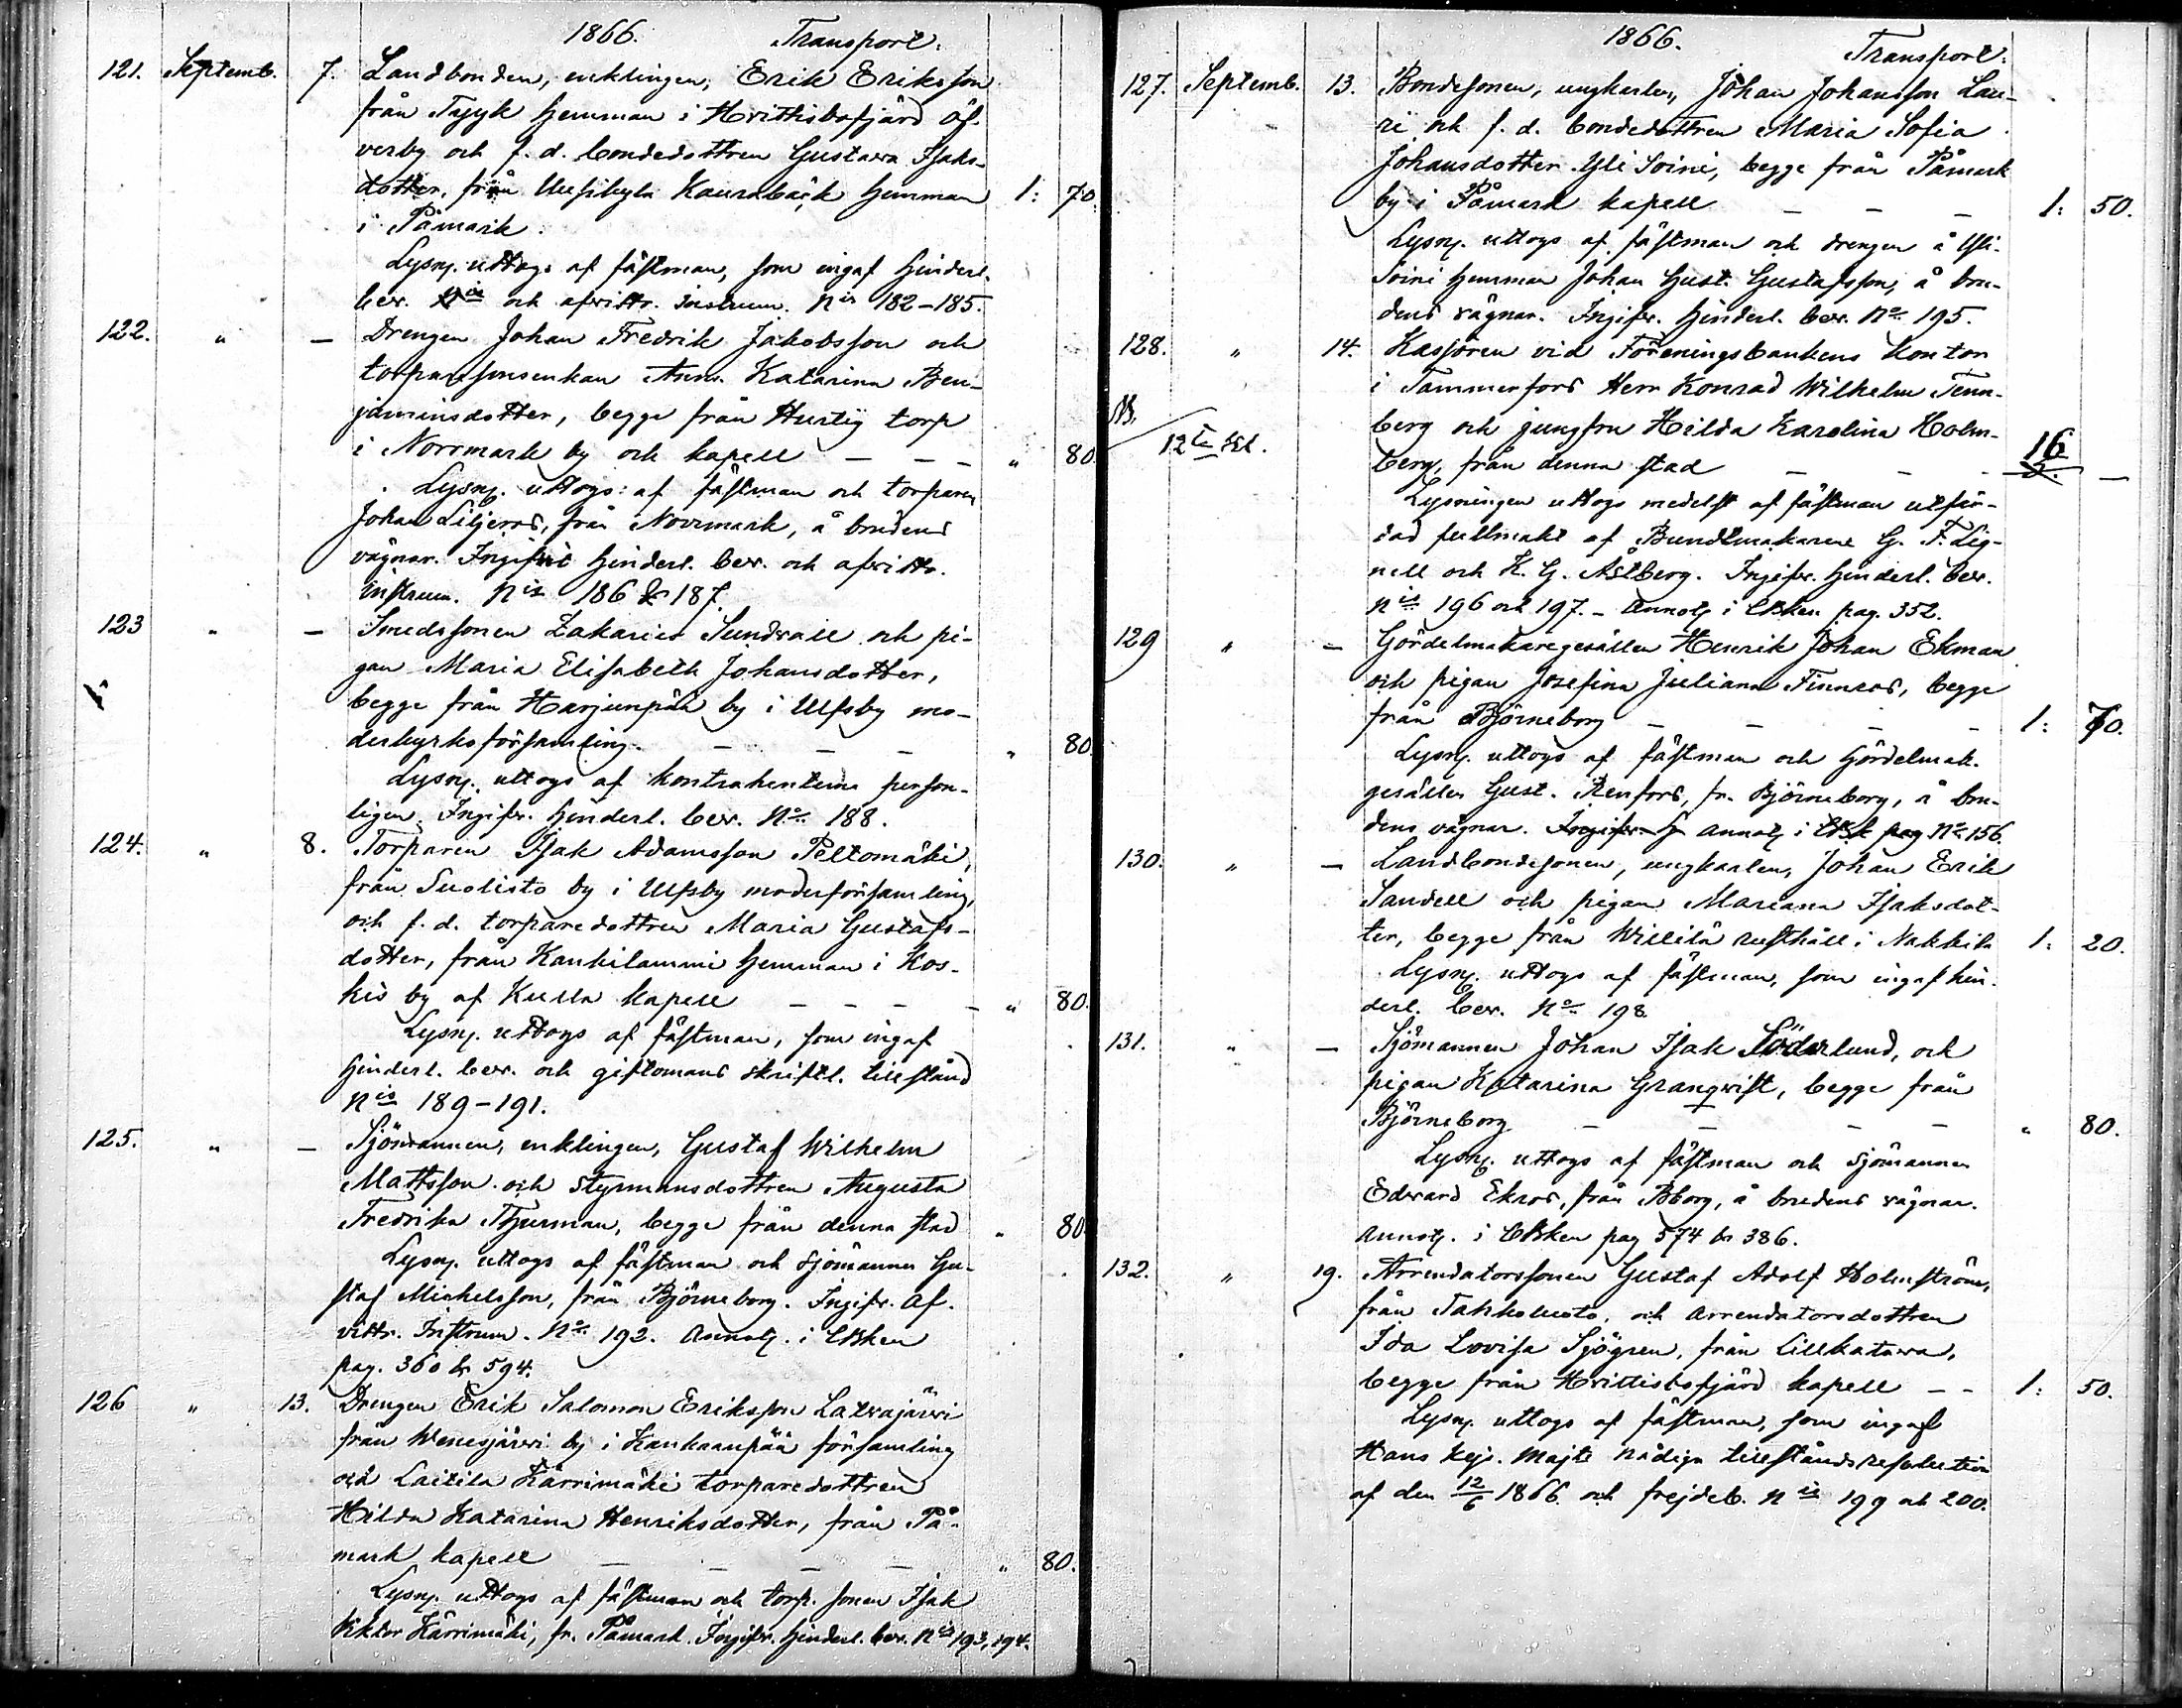 1866. Transport.
121. Septemb. 7. Landbonden, enklingen, Erik Eriksson
från Tajyk hemman i Hvittisbofjärd Öf-
verby och f. d. bondedottren Gustava Isaks-
dotter, från Uusikylä Kaurabäck hemman 1: 70.
i Påmark.
Lysng. uttogs af fästman, som ingaf hinderl.
bev. och afvittr. instrum. Nis 182–185.
122. " — Drengen Johan Fredrik Jakobsson och
torparesonsenkan Anna Katarina Ben-
jaminsdotter, begge från torp
i Norrmark by och kapell — — — " 80.
Lysng. uttogs af fästman och torparen
Johan Liljeros, från Norrmark, å brudens
vägnar. Ingifvit hinderl. bev. och afvittr.
instrum. Nis 186 & 187.
123 " — Smedssonen Zakarias Sundvall och pi-
gan Maria Elisabeth Johansdotter,
begge från Harjunpää by i Ulfsby mo-
derkyrkoförsamling. — — — " 80.
Lysng. uttogs af kontrahenterna person-
ligen. Ingifv. hinderl. bev. No 188.
124. " 8. Torparen Isak Adamsson Peltomäki,
från Suolisto by i Ulfsby moderförsamling,
och f. d. torparedottren Maria Gustafs-
dotter, från Kankilammi hemman i Kos-
kis by af Kulla kapell — — — — " 80.
Lysng. uttogs af fästman, som ingaf
hinderl. bev. och giftomans skriftl. tillstånd
Nis 189–191.
125. " — Sjömannen, enklingen, Gustaf Wilhelm
Mattsson och styrmansdottren Augusta
Fredrika Thurman, begge från denna stad " 80.
Lysng. uttogs af fästman och sjömannen Gu-
staf Michelsson, från Björneborg. Ingifv. af-
vittr. Instrum. No 192. Annotg. i CBken
pag. 360 & 594.
126 " 13. Drengen Erik Salomon Eriksson Latvajärvi
från Wenesjärvi by i Kankaanpää församling
och Laitila Kärrimäki torparedottren
Hilda Katarina Henriksdotter, från På-
mark kapell — — — " 80.
Lysng. uttogs af fästman och torp. sonen Isak
Viktor Kärrimäki, fr. Påmark. Ingifv. hinderl. bev. Nis 193, 194.
1866. Transport.
127. Septemb. 13. Bondesonen, ungkarlen, Johan Johansson Lau-
ri och f. d. bondedottren Maria Sofia
Johansdotter Yli Soini, begge från Påmark
by i Påmark kapell — — — 1: 50.
Lysng. uttogs af fästman och drengen å Yli-
Soini hemman Johan Gust. Gustafsson, å bru-
dens vägnar. Ingifv. hinderl. bev. No 195.
128. " 14. Kassören vid Föreningsbankens Kontor
i Tammerfors Herr Konrad Wilhelm Tenn-
NB. berg och jungfru Hilda Karolina Holm-
berg, från denna stad — — — 16 —
Lysningen uttogs medelst af fästman utfär-
dad fullmakt af Bundtmakarene G. F. Lig-
nell och K. G. Åstberg. Ingifv. hinderl. bev.
Nis 196 och 197. – Annotg i CBken pag. 352.
129 " — Gördelmakaregesällen Henrik Johan Ekman
och pigan Josefina Juliana Finnros, begge
från Björneborg — — — — 1: 70.
Lysng. uttogs af fästman och Gördelmak.
gesällen Gust. Renfors, fr. Björneborg, å bru-
dens vägnar. Ingifv. h Annotg i CBk pag No 156.
130. " — Landbondesonen, ungkarlen, Johan Erik
Sandell och pigan Mariana Isaksdot-
ter, begge från Willilä rusthåll i Nakkila 1: 20.
Lysng. uttogs af fästman, som ingaf hin-
derl. bev. No 198.
131. " — Sjömannen Johan Isak Söderlund, och
pigan Katarina Granqvist, begge från
Björneborg — — — — " 80.
Lysng. uttogs af fästman och Sjömannen
Edvard Ekros, från Bborg, å brudens vägnar.
Annotg. i CBken pag 574 & 386.
132. " 19. Arrendatorssonen Gustaf Adolf Holmström,
från Tahkoluoto, och arrendatorsdottren
Ida Lovisa Sjögren, från Lillkatava,
begge från Hvittisbofjärd kapell — — 1: 50.
Lysng. uttogs af fästman, som ingaf
Hans Kejs. Majts nådiga tillståndsresolution
af den 12/6 1866 och frejdeb. Nis 199 och 200.